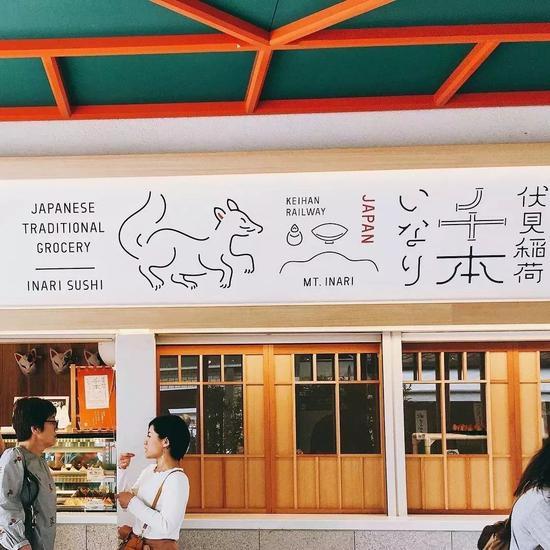 JAPANESE
TRADITIONAL
GROCERY
INARI SUSHI
KEIHAN
RAILWAY
JAPAN
MT. INARI
伏見稲荷
千本
いなり